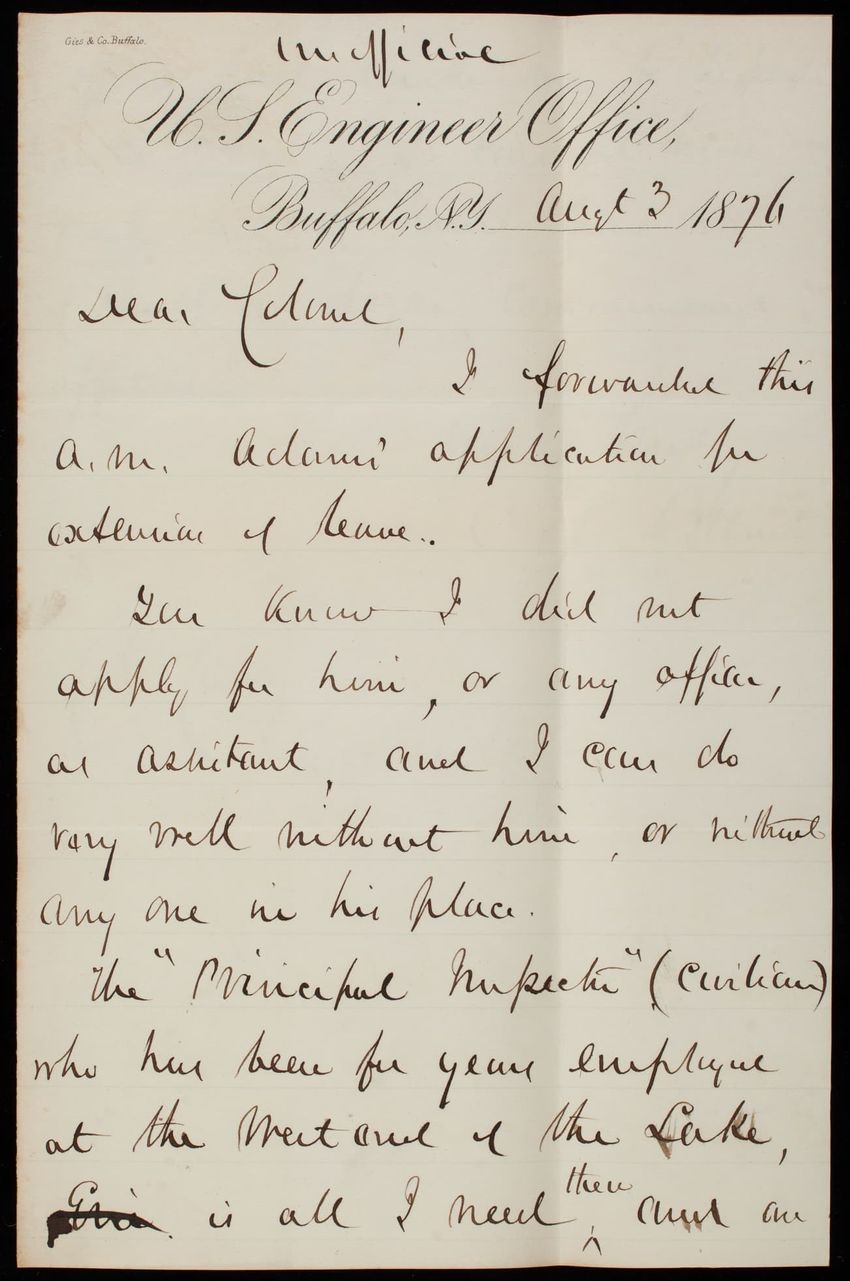 Gies & Co. Buffalo.
Unofficial
U. S. Engineer Office,
Buffalo, N.Y. Augt 3 1876
Dear Colonel,
I forwarded this
a.m. Adams' application for
extension of leave..
You know I did not
apply for him, or any officer,
as assistant, and I can do
very well without him, or without
any one in his place.
The "Principal Inspector" (civilian)
who has been for years employed
at the West end of the Lake,
Erie. is all I need there and an